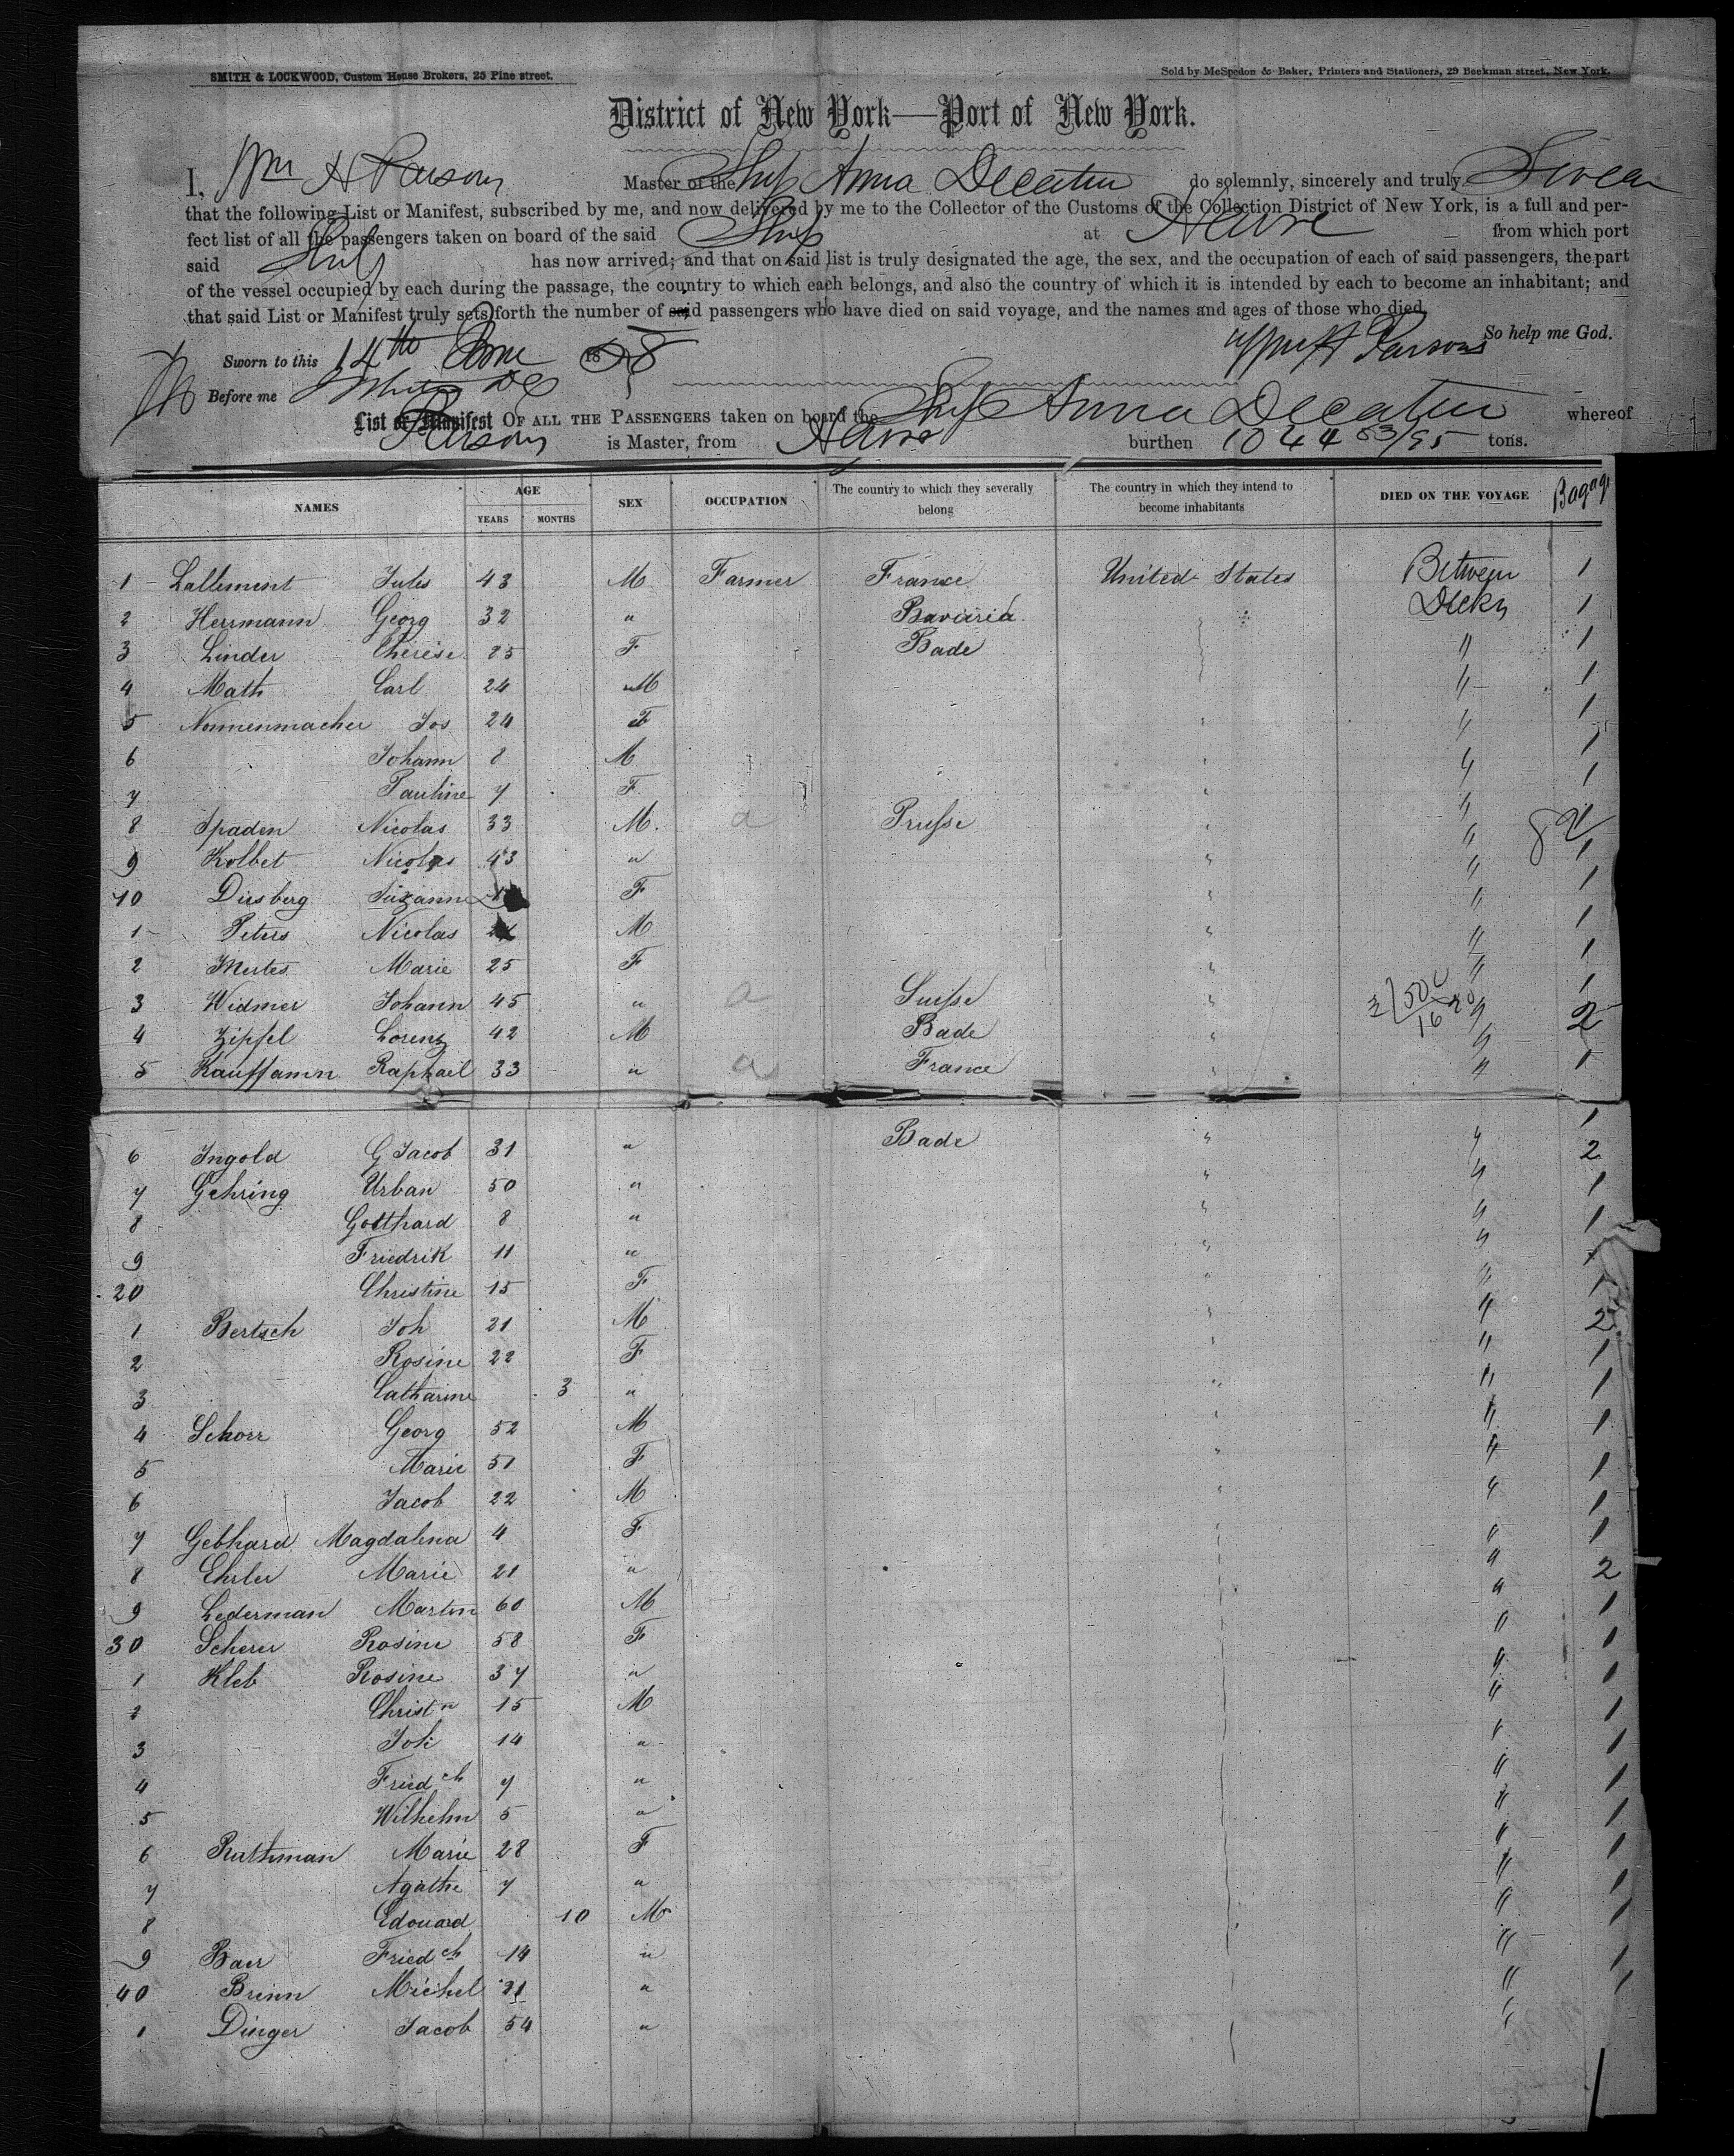 SMITH & LOCKWOOD, Custom House Brokers, 25 Pine street.
Sold by McSpedon & Baker, Printers and Stationers, 29 Beekman street, New York.
District of New York—Port of New York.
I, Wm H Parsons Master of the Ship Anna Decatur do solemnly, sincerely and truly Swear
that the following List or Manifest, subscribed by me, and now delivered by me to the Collector of the Customs of the Collection District of New York, is a full and per-
fect list of all the passengers taken on board of the said Ship at Havre from which port
said Ship has now arrived; and that on said list is truly designated the age, the sex, and the occupation of each of said passengers, the part
of the vessel occupied by each during the passage, the country to which each belongs, and also the country of which it is intended by each to become an inhabitant; and
that said List or Manifest truly sets forth the number of said passengers who have died on said voyage, and the names and ages of those who died.
So help me God.
Sworn to this 14th June 1858 Wm H Parsons
Before me
List or Manifest OF ALL THE PASSENGERS taken on board the Ship Anna Decatur whereof
Parsons is Master, from Havre burthen 1044 53/95 tons.
NAMES AGE YEARS MONTHS SEX OCCUPATION The country to which they severally belong The country in which they intend to become inhabitants DIED ON THE VOYAGE Bagage
1 Lallement Jules 43 M Farmer France United States Between 1
2 Herrmann Georg 32 " Bavaria Decks 1
3 Linder Therese 25 F Bade " 1
4 Math Carl 24 M " 1
5 Nonnenmacher Jos 24 F " 1
6 Johann 8 M " 1
7 Pauline 7 F " 1
8 Spaden Nicolas 33 M Prusse "
9 Kolbet Nicolas 43 " " 1
10 Dirsberg Suzanne F " 1
1 Peters Nicolas M " 1
2 Mertes Marie 25 F " 1
3 Widmer Johann 45 " Suisse " 1
4 Zipfel Lorenz 42 M Bade " 2
5 Kauffamm Raphael 33 " France " 1
6 Ingold G Jacob 31 " Bade " 2
7 Gehring Urban 50 " " 1
8 Gotthard 8 " " 1
9 Friedrik 11 " " 1
20 Christine 15 F " 1
1 Bertsch Joh 21 M " 2
2 Rosine 22 F " 1
3 Catharine 3 " " 1
4 Schorr Georg 52 M " 1
5 Marie 51 F " 1
6 Jacob 22 M " 1
7 Gebhard Magdalena 4 F " 1
8 Ehrler Marie 21 " " 2
9 Lederman Martin 60 M " 1
30 Scherer Rosine 58 F " 1
1 Kleb Rosine 37 " " 1
2 Christn 15 M " 1
3 Joh 14 " " 1
4 Friedch 7 " " 1
5 Wilhelm 5 " " 1
6 Ruthman Marie 28 F " 1
7 Agathe 7 " " 1
8 Edouard 10 M " 1
9 Baer Friedch 14 " " 1
40 Brinn Michel 31 " " 1
1 Dinger Jacob 54 " "